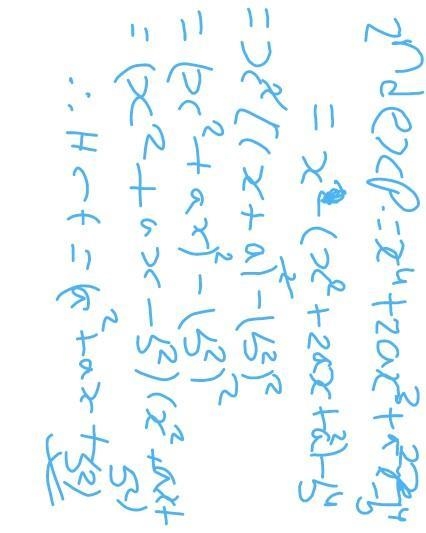 2nd exp. = x⁴ + 2ax³ + a²x² - b⁴
= x² (x² + 2ax + a²) - b⁴
= x² (x + a)² - (b²)²
= (x² + ax)² - (b²)²
= (x² + ax - b²) (x² + ax + b²)
∴ H c f = (x² + ax + b²)